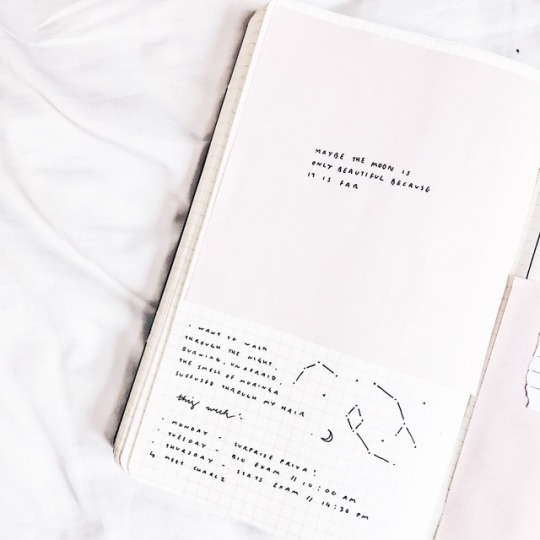 MAYBE THE MOON IS
ONLY BEAUTIFUL BECAUSE
IT IS FAR
I WANT TO WALK
THROUGH THE NIGHT,
BURNING, UNAFRAID,
THE SMELL OF MORINGA
SUFFUSED THROUGH MY HAIR
this week:
. MONDAY - SURPRISE PRIYA!
. TUESDAY - BIO EXAM // 10:00 AM
. THURSDAY - STATS EXAM // 14:30 PM
↳ MEET